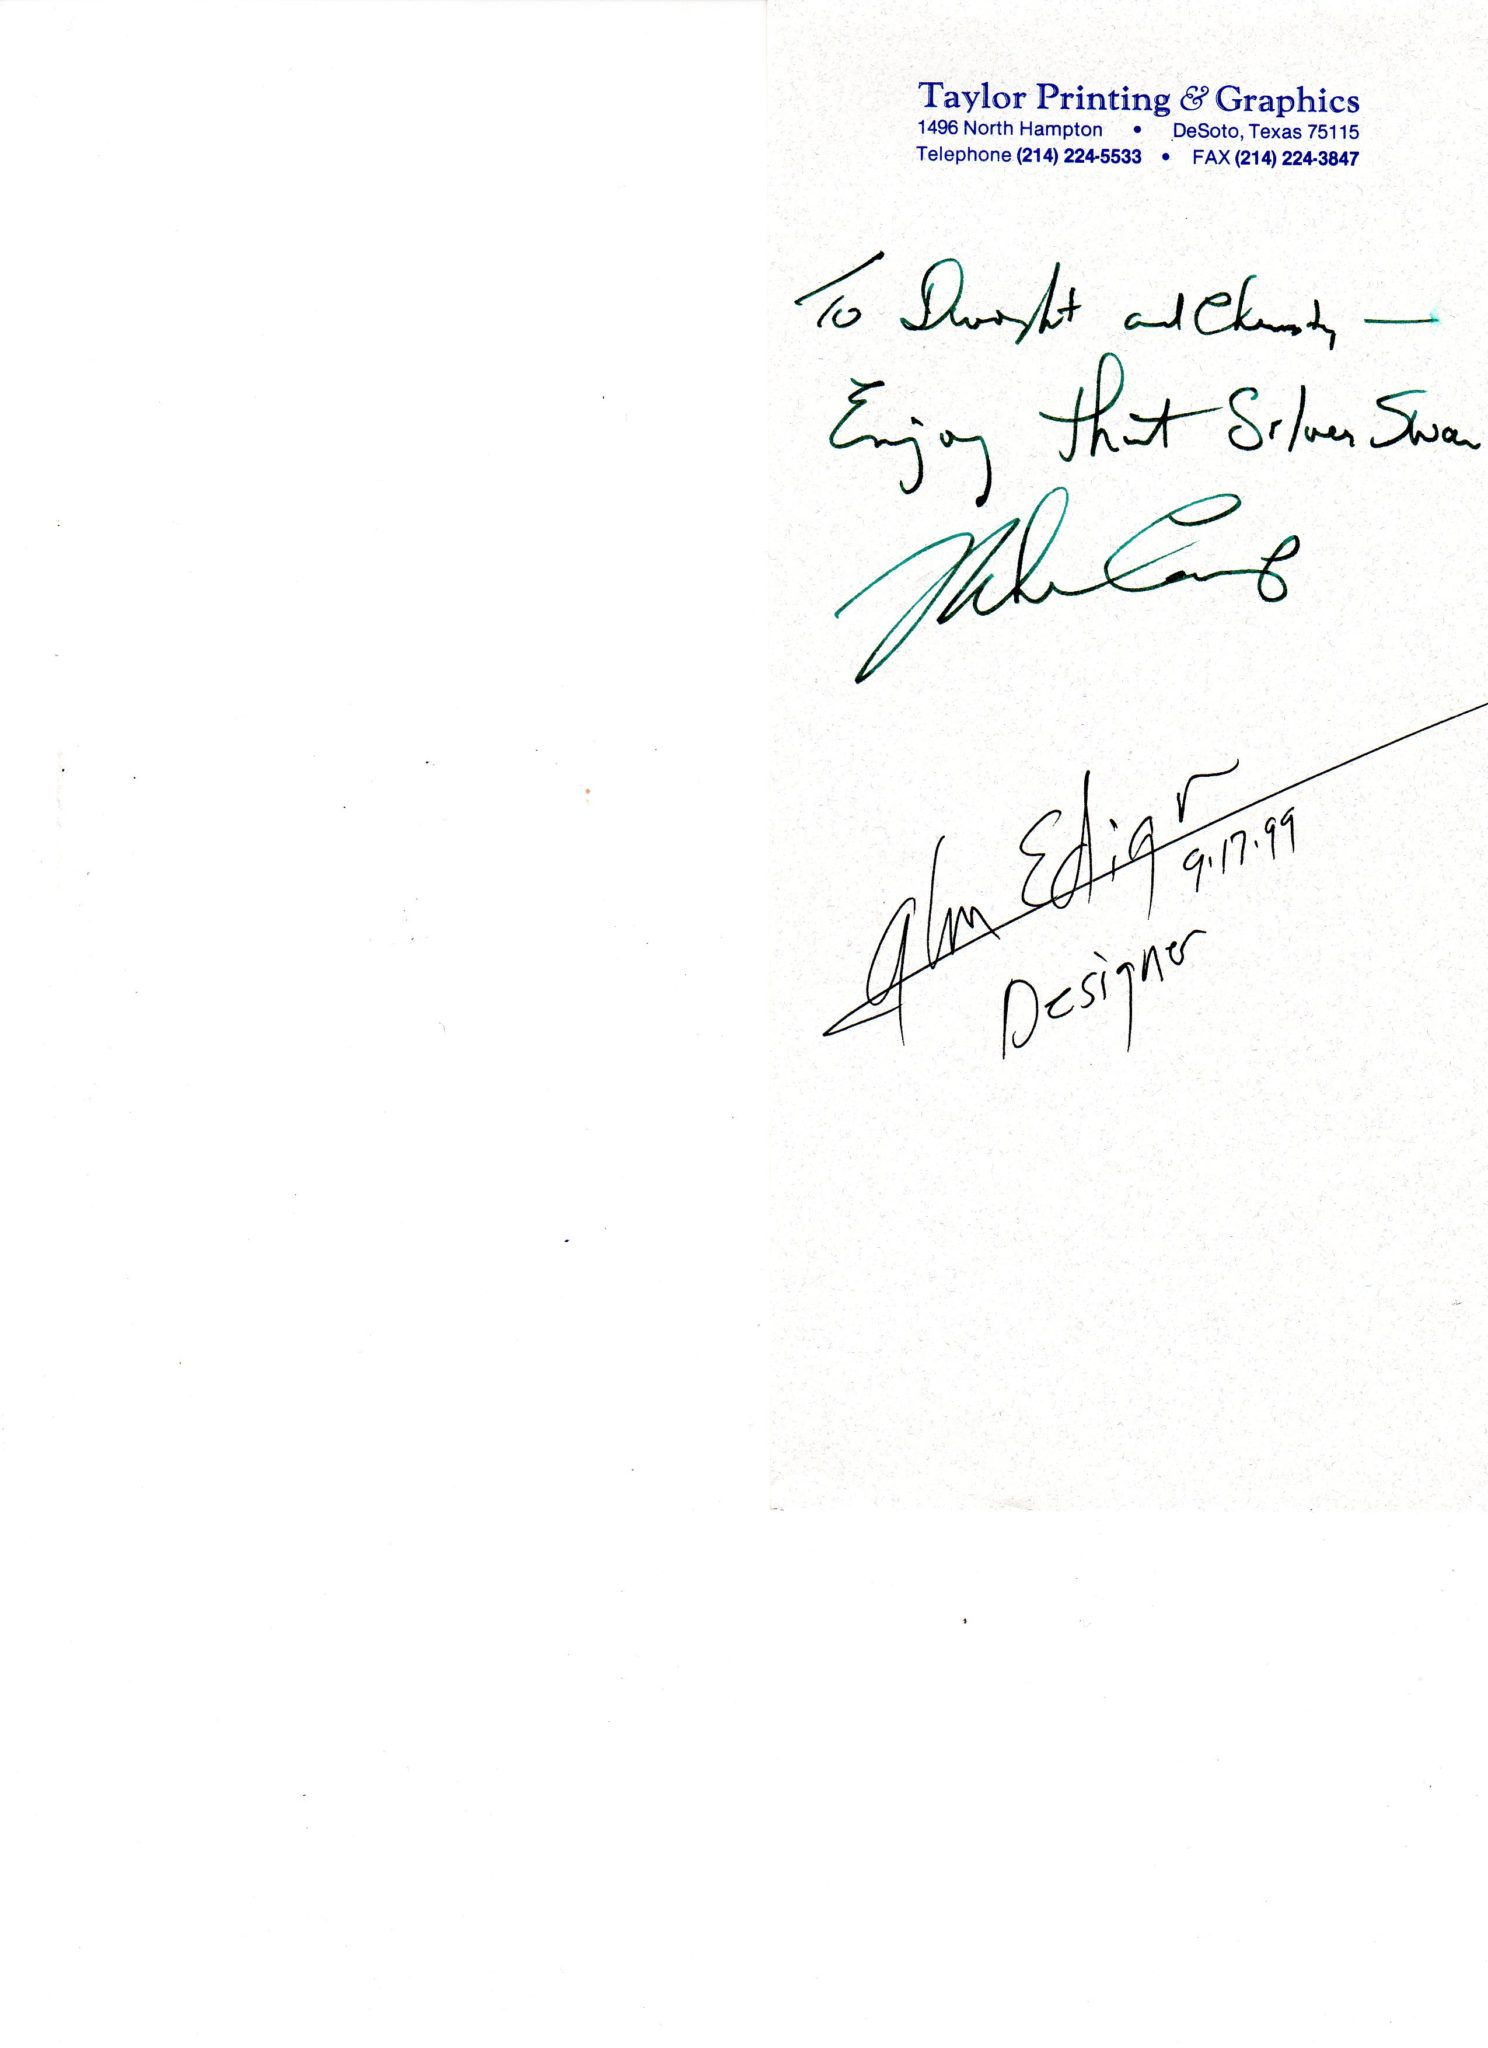 Taylor Printing & Graphics
1496 North Hampton • DeSoto, Texas 75115
Telephone (214) 224-5533 • FAX (214) 224-3847
To Dwight and —
Enjoy that Silver Swan
9.17.99
Designer